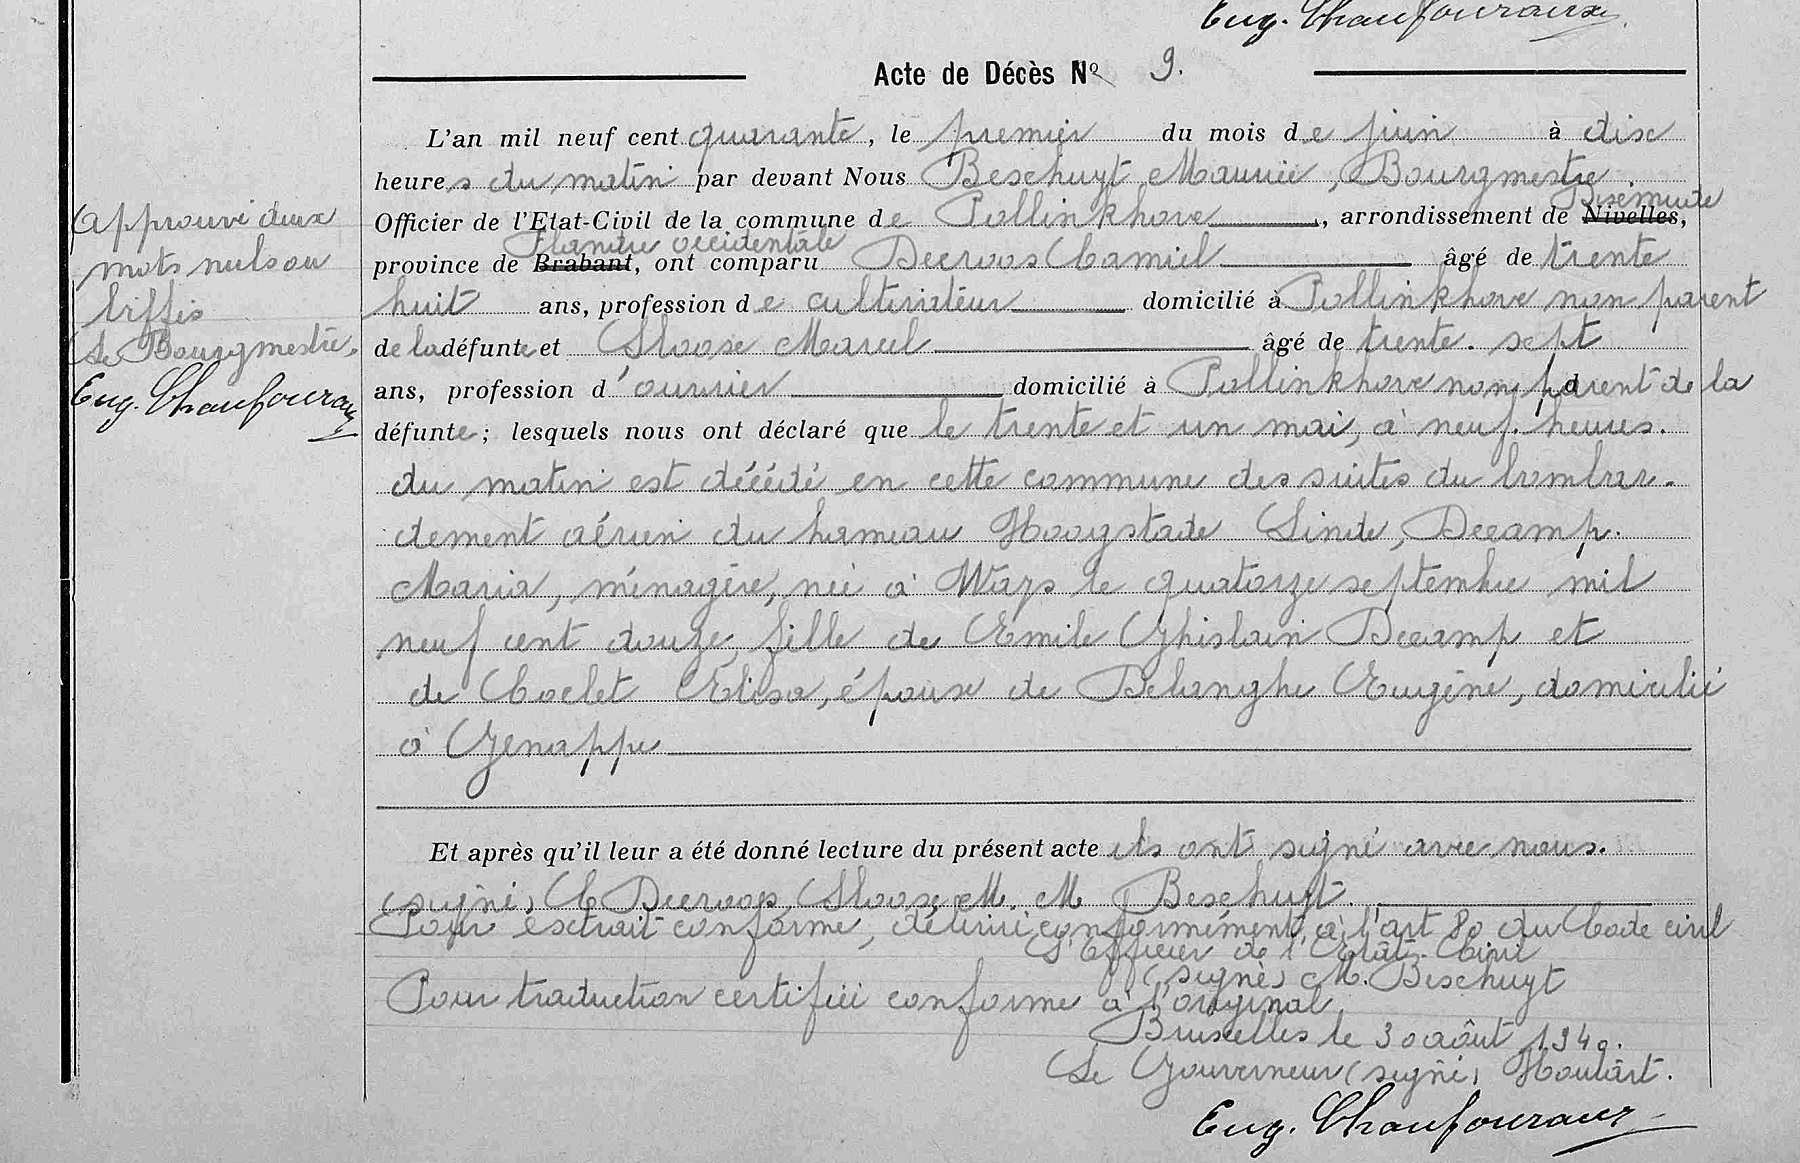 Eug. Chaufouraux
Acte de Décès Nº 9.
L'an mil neuf cent quarante, le premier du mois de juin à dix
heures du matin par devant Nous Beschuyt Maurice, Bourgmestre
Dixmude
Officier de l'Etat-Civil de la commune de Pollinkhove, arrondissement de Nivelles,
Flandre occidentale
province de Brabant, ont comparu Decroos Camiel âgé de trente
huit ans, profession de cultivateur domicilié à Pollinkhove non parent
de la défunte et Sloose Marcel âgé de trente-sept
ans, profession d'ouvrier domicilié à Pollinkhove non parent de la
défunte; lesquels nous ont déclaré que le trente et un mai, à neuf heures.
du matin est décédé en cette commune des suites du bombar-
dement aérien du hameau Hoogstade Linde, Decamp.
Maria, ménagère, née à Ways le quatorze septembre mil
neuf cent douze, fille de Emile Ghislain Decamp et
de Coelet Elisa, épouse de Delanghe Eugène, domicilié
à Genappe
Et après qu'il leur a été donné lecture du présent acte ils ont signé avec nous.
(signé) C Decroos, Sloose M. M Beschuyt.
Pour extrait conforme, délivré conformément à l'art 80 du Code civil
L'Officier de l'Etat-Civil
(signé) M. Beschuyt
Pour traduction certifiée conforme à l'original
Bruxelles le 30 août 1940.
Le Gouverneur (signé) Houtart.
Eug. Chaufouraux
Approuvé deux
mots nuls ou
biffés
Le Bourgmestre,
Eug. Chaufouraux